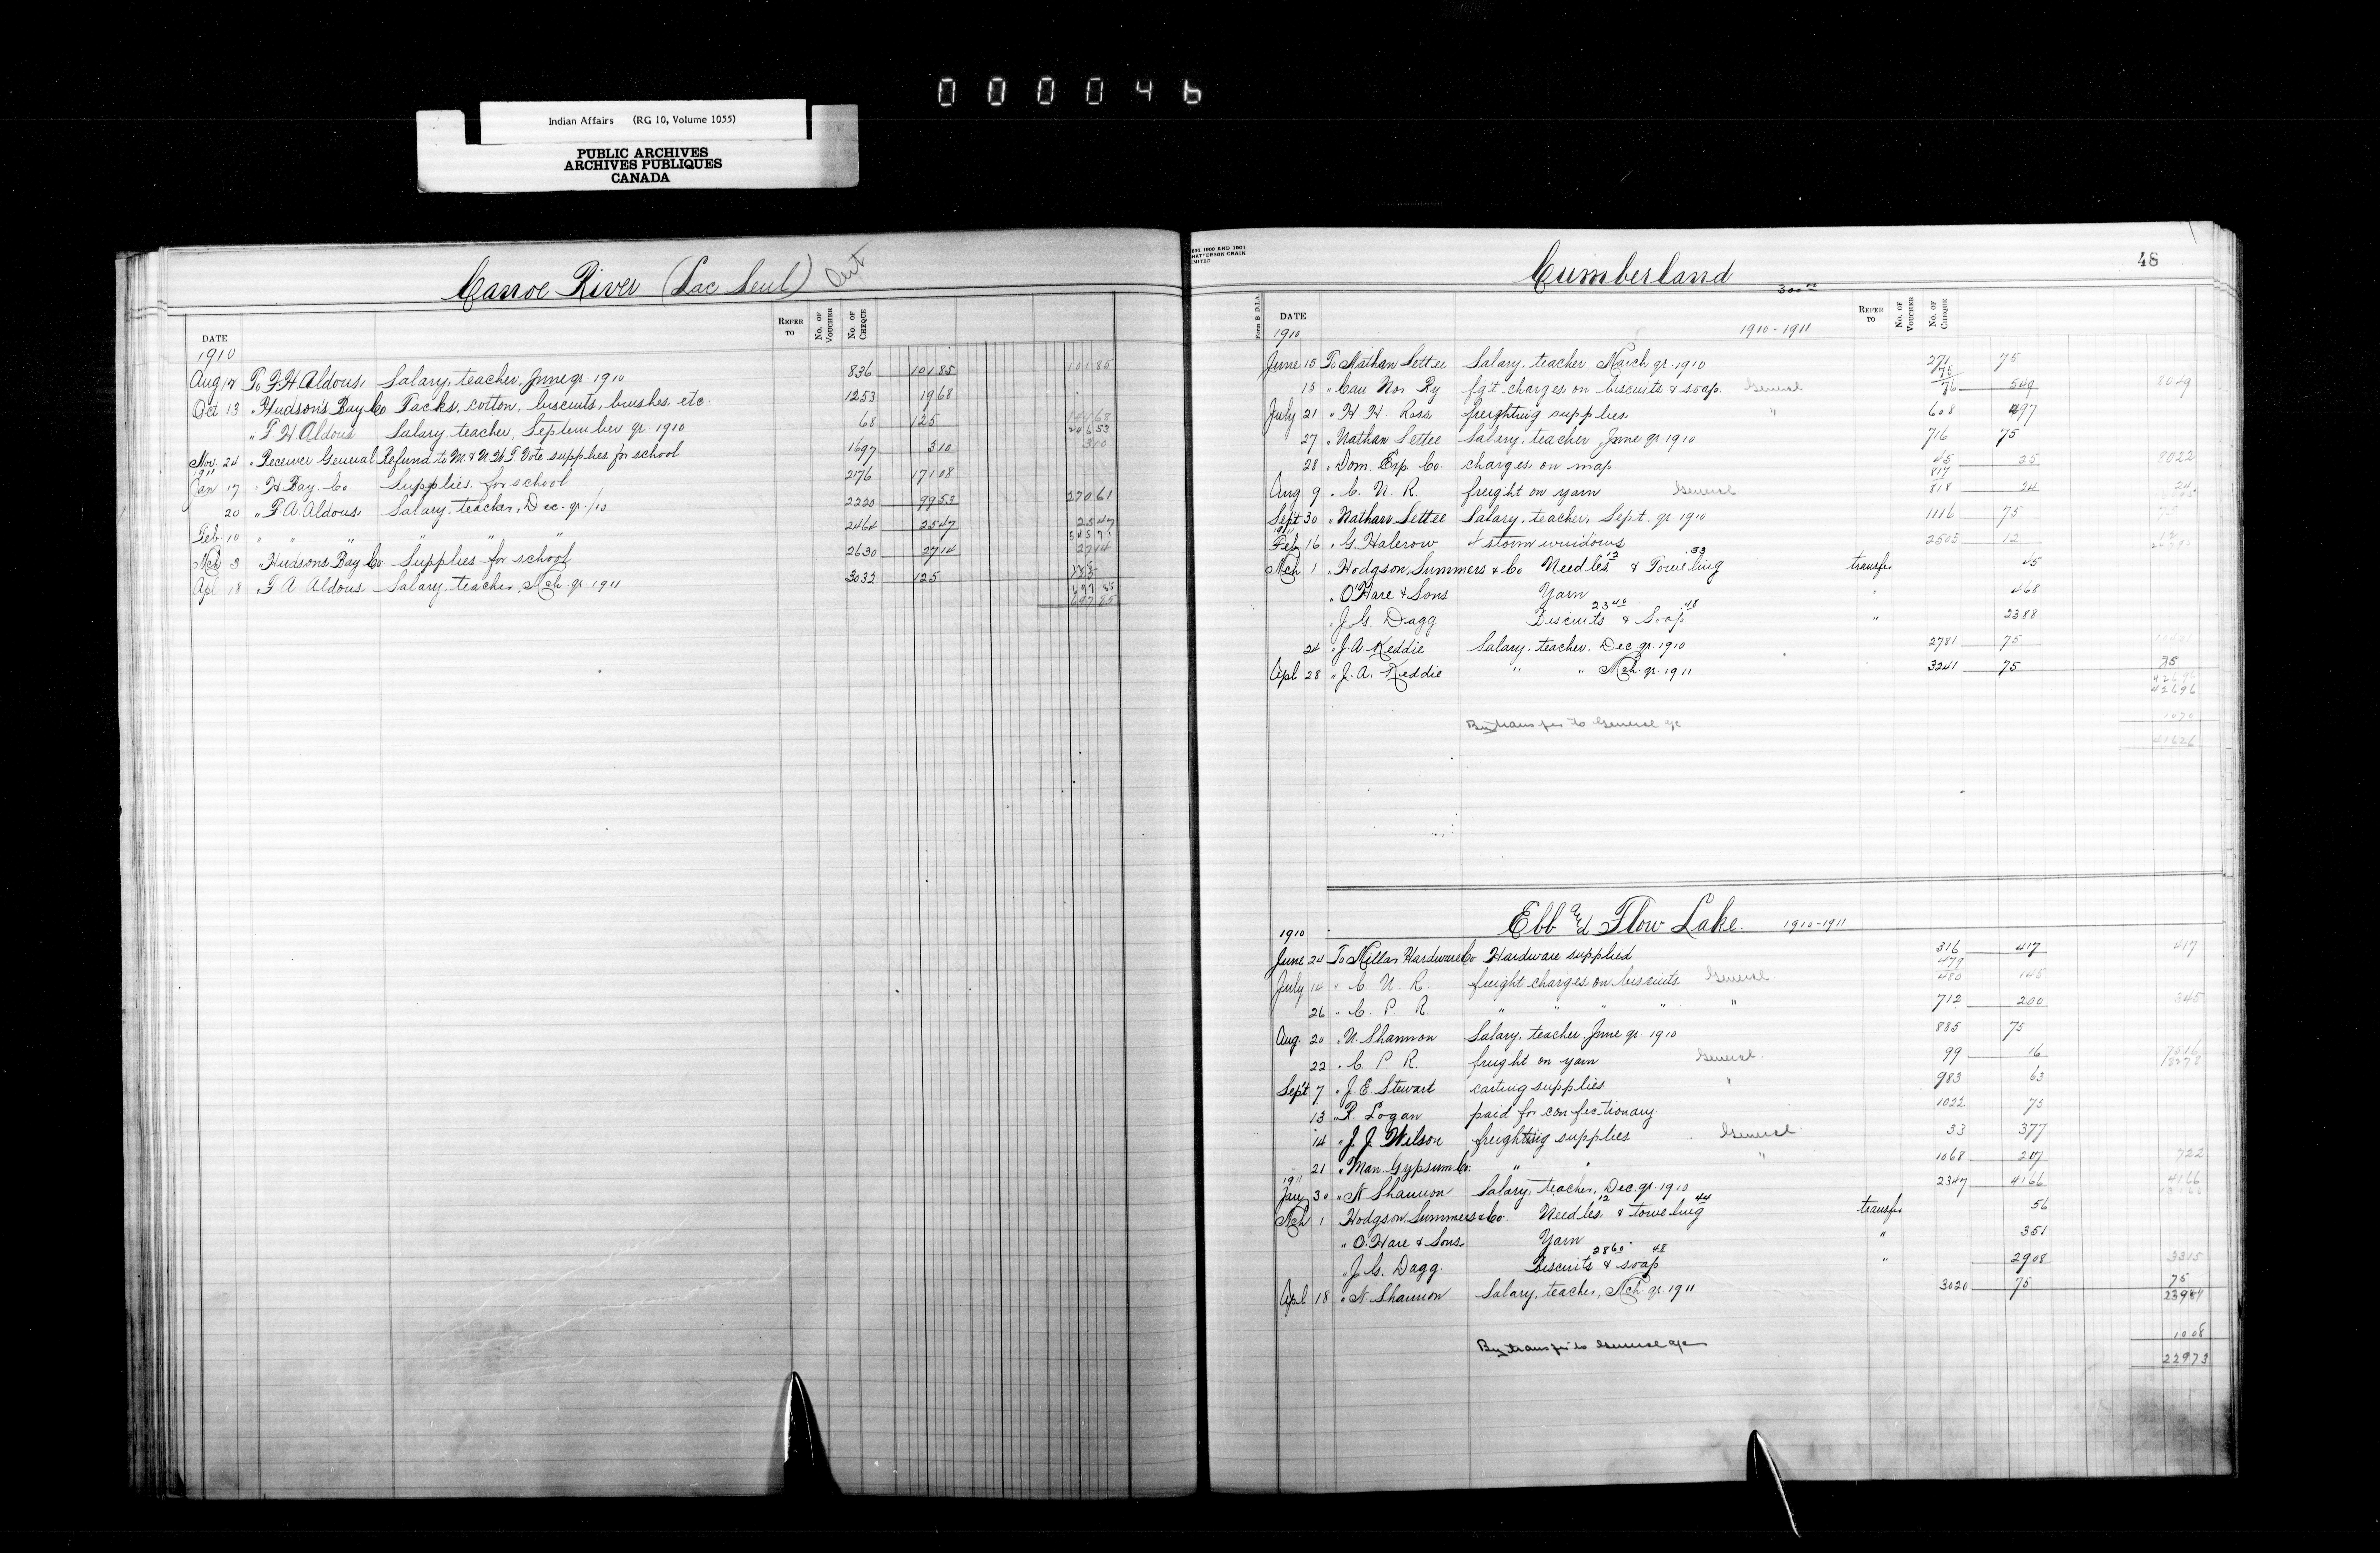 000046
Indian Affairs (RG 10, Volume 1055)
PUBLIC ARCHIVES
ARCHIVES PUBLIQUES
CANADA
Canoe River (Lac Seul) Ont
DATE REFER TO No. OF VOUCHER No. OF CHEQUE
1910
Aug 12 To F. H. Aldous Salary, teacher, June qr. 1910 836 101 85 101 85
Oct 13 " Hudson's Bay Co Tacks, cotton, biscuits, brushes, etc 1253 19 68
" F H Aldous Salary teacher, September qr 1910 68 125 144 68
246 53
Nov. 24 " Receiver General Refund to M. & N.W.T. Vote supplies for school 1697 3 10 3 10
1911
Jan 17 " H Bay Co. Supplies for school 2176 171 08
20 " F. A. Aldous Salary, teacher, Dec. qr. /10 2220 99 53 270 61
Feb. 10 " " " " " 2464 25 47 25 47
545 71
Mch 3 " Hudsons Bay Co. Supplies for school 2630 27 14 27 14
Apl 18 " F. A. Aldous Salary teacher, Mch. qr. 1911 3032 125 125
697 85
697 85
48
1896, 1900 AND 1901
CHATTERSON-CRAIN
LIMITED
Cumberland
300 00
Form B D.I.A. DATE REFER TO No. OF VOUCHER No. OF CHEQUE
1910 1910-1911
June 15 To Nathan Settee Salary, teacher March qr. 1910 271 75
15 " Can Nor. Ry. fg't charges on biscuits & soap. General 75/76 5 49 80 49
July 21 " H. H. Ross freighting supplies " 608 4 97
27 " Nathan Settee Salary, teacher, June qr. 1910 716 75
28 " Dom. Exp. Co. charges on map 45 25 80 22
Aug 9 " C. N. R. freight on yarn General 817/818 24 24
Sept 30 " Nathan Settee Salary, teacher, Sept. qr. 1910 1116 75 75
1911
Feb 16 " G. Halcrow 4 storm windows 2505 12 12
Mch 1 " Hodgson, Summers & Co Needles 12 & Toweling .33 transfer 45
" O'Hare & Sons Yarn " 4 68
" J. G. Dagg Biscuits 23 40 & Soap 48 " 23 88
24 " J. A. Keddie Salary, teacher, Dec. qr. 1910 2781 75
Apl 28 " J. A. Keddie " " Mch qr. 1911 3241 75 75
426 96
426 96
By transfer to General a/c 10 70
416 26
Ebb and Flow Lake. 1910-1911
1910
June 24 To Millar Hardware Co Hardware supplied 316 4 17 4 17
July 14 " C. N. R. freight charges on biscuits General 479/480 1 45
26 " C. P. R. " " " " " 712 2 00 3 45
Aug. 20 " N. Shannon Salary, teacher June qr. 1910 885 75
22 " C. P. R. freight on yarn General 99 16 75 16
82 78
Sept 7 " J. E. Stewart carting supplies " 983 63
13 " R. Logan paid for confectionary. 1022 75
14 " J. J. Wilson freighting supplies General 33 3 77
21 " Man. Gypsum Co. " " " 1068 2 07 7 22
1911
Jany 30 " N. Shannon Salary, teacher, Dec. qr. 1910 2347 41 66 41 66
131 66
Mch 1 Hodgson, Summers & Co. Needles 12 & toweling 44 transfer 56
" O. Hare & Sons Yarn " 3 51
" J. G. Dagg. Biscuits 28 60 & soap 48 " 29 08 33 15
Apl 18 " N. Shannon Salary, teacher, Mch. qr. 1911 3020 75 75
239 81
By transfer to General a/c 10 08
229 73